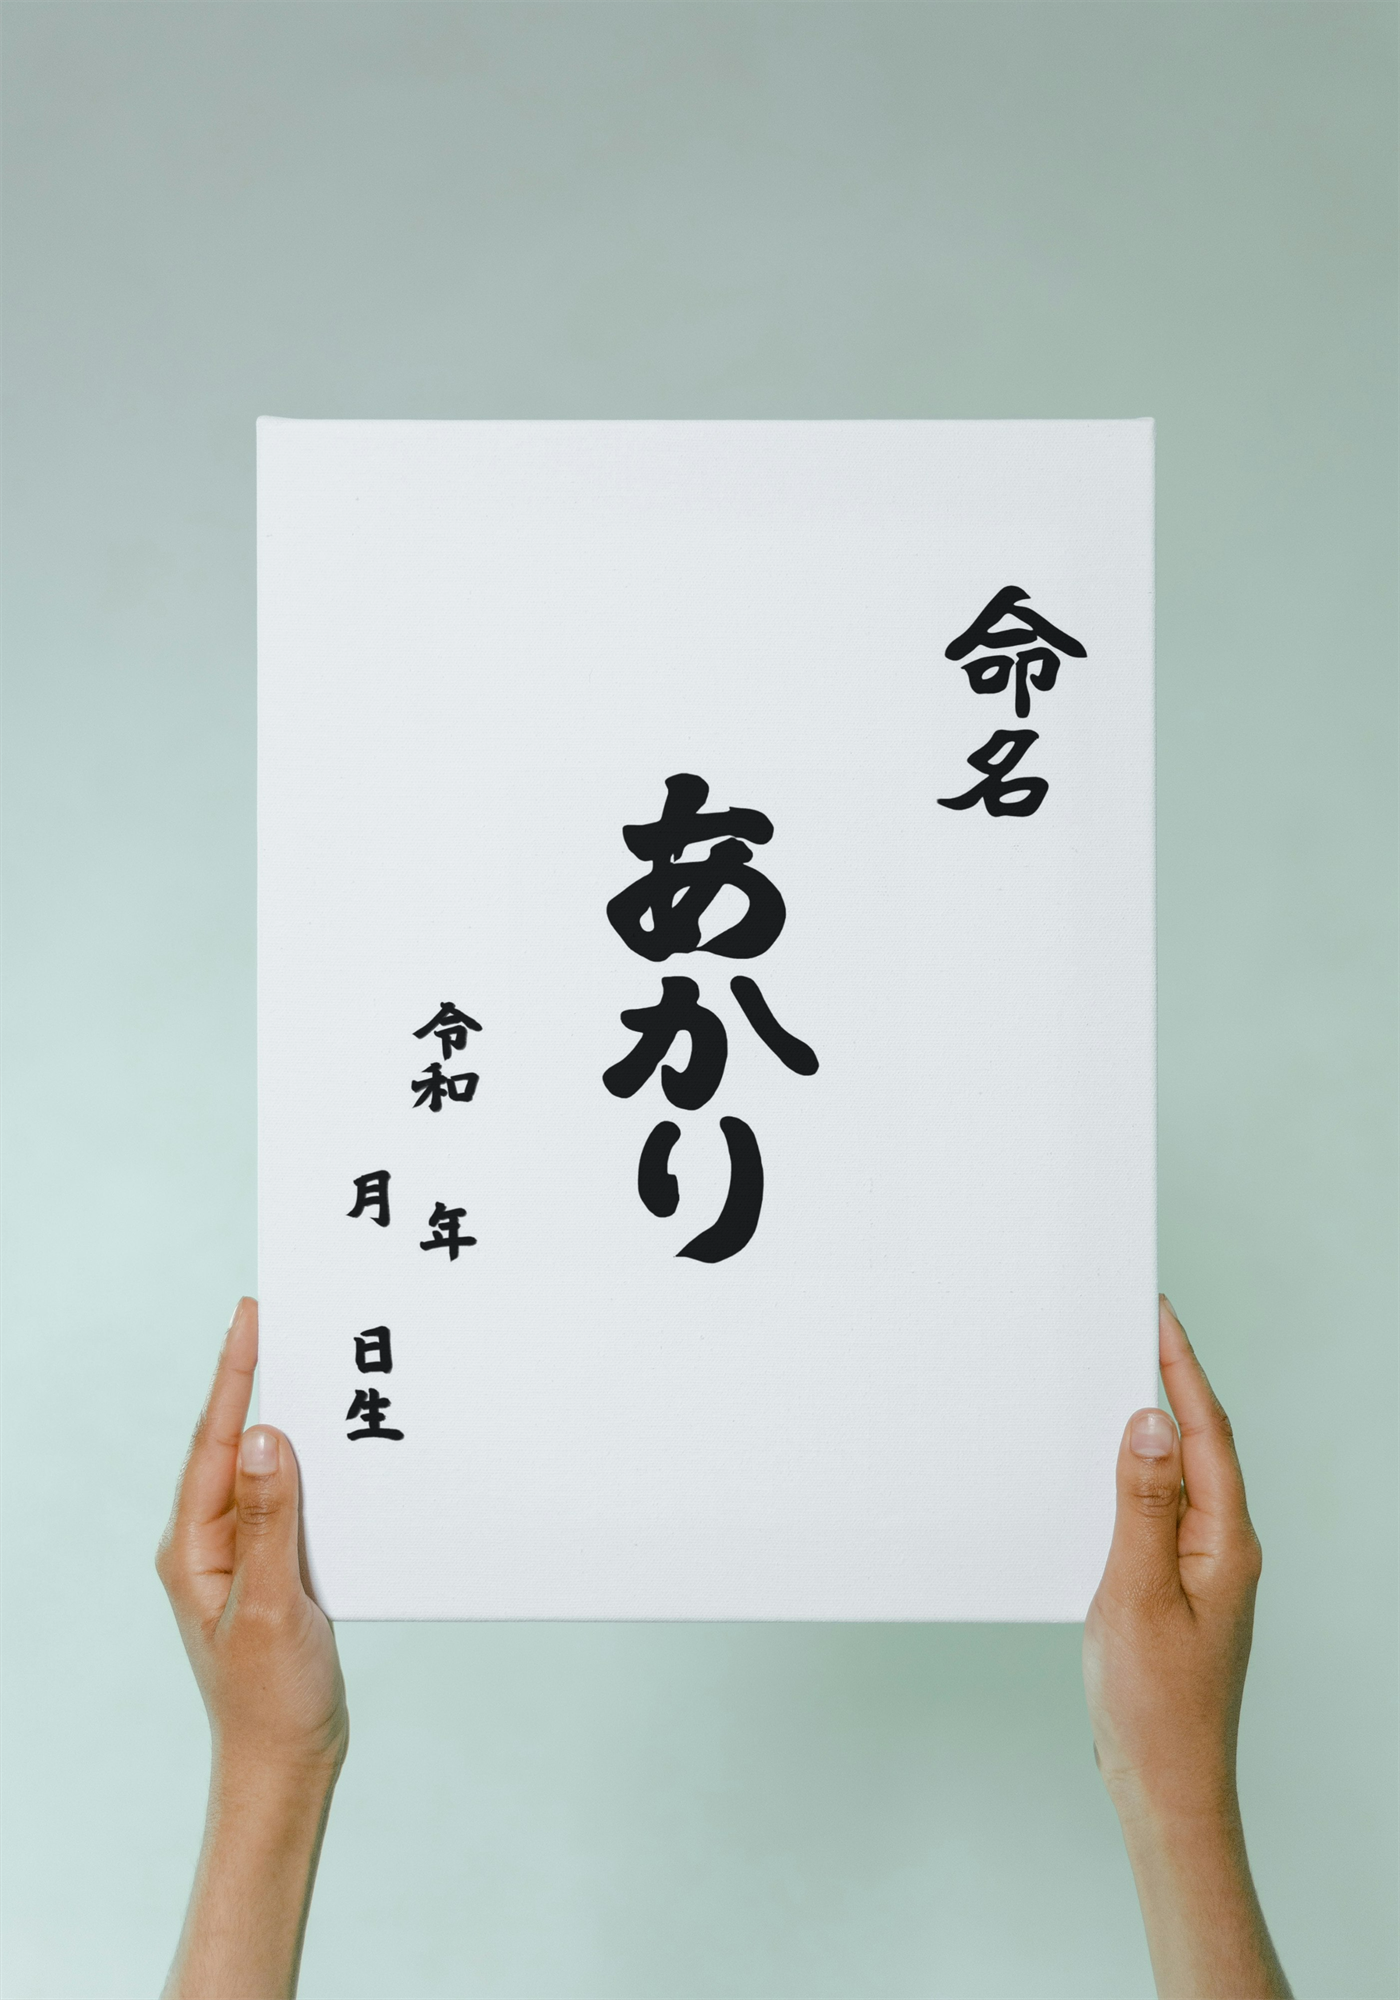 命名
あかり
令和　年
月　日生